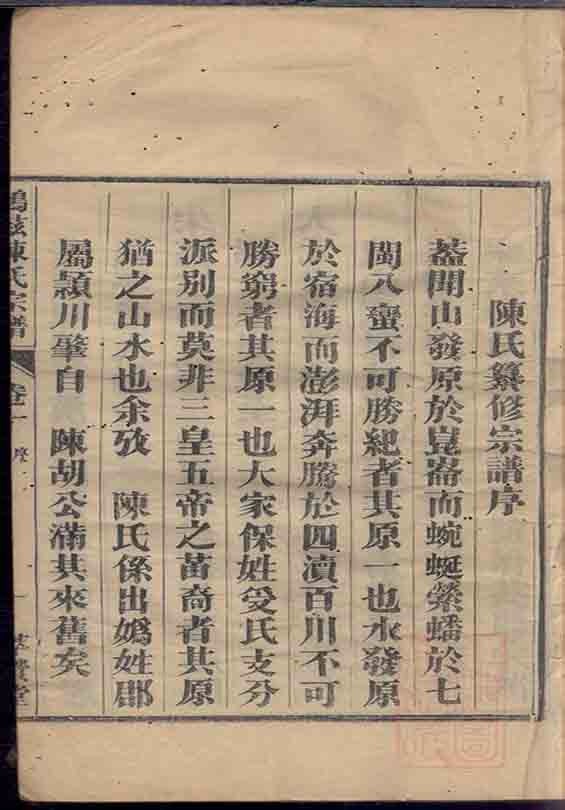 陳氏纂修宗譜序
蓋聞山發原於崑崙而蜿蜒縈蟠於七
閩八蠻不可勝紀者其原一也水發原
於宿海而澎湃奔騰於四瀆百川不可
勝窮者其原一也大家保姓受氏支分
派別而莫非三皇五帝之苗裔者其原
猶之山水也余攷　陳氏係出嬀姓郡
屬潁川肇自　陳胡公滿其來舊矣
鳩茲陳氏宗譜　卷一　序　一